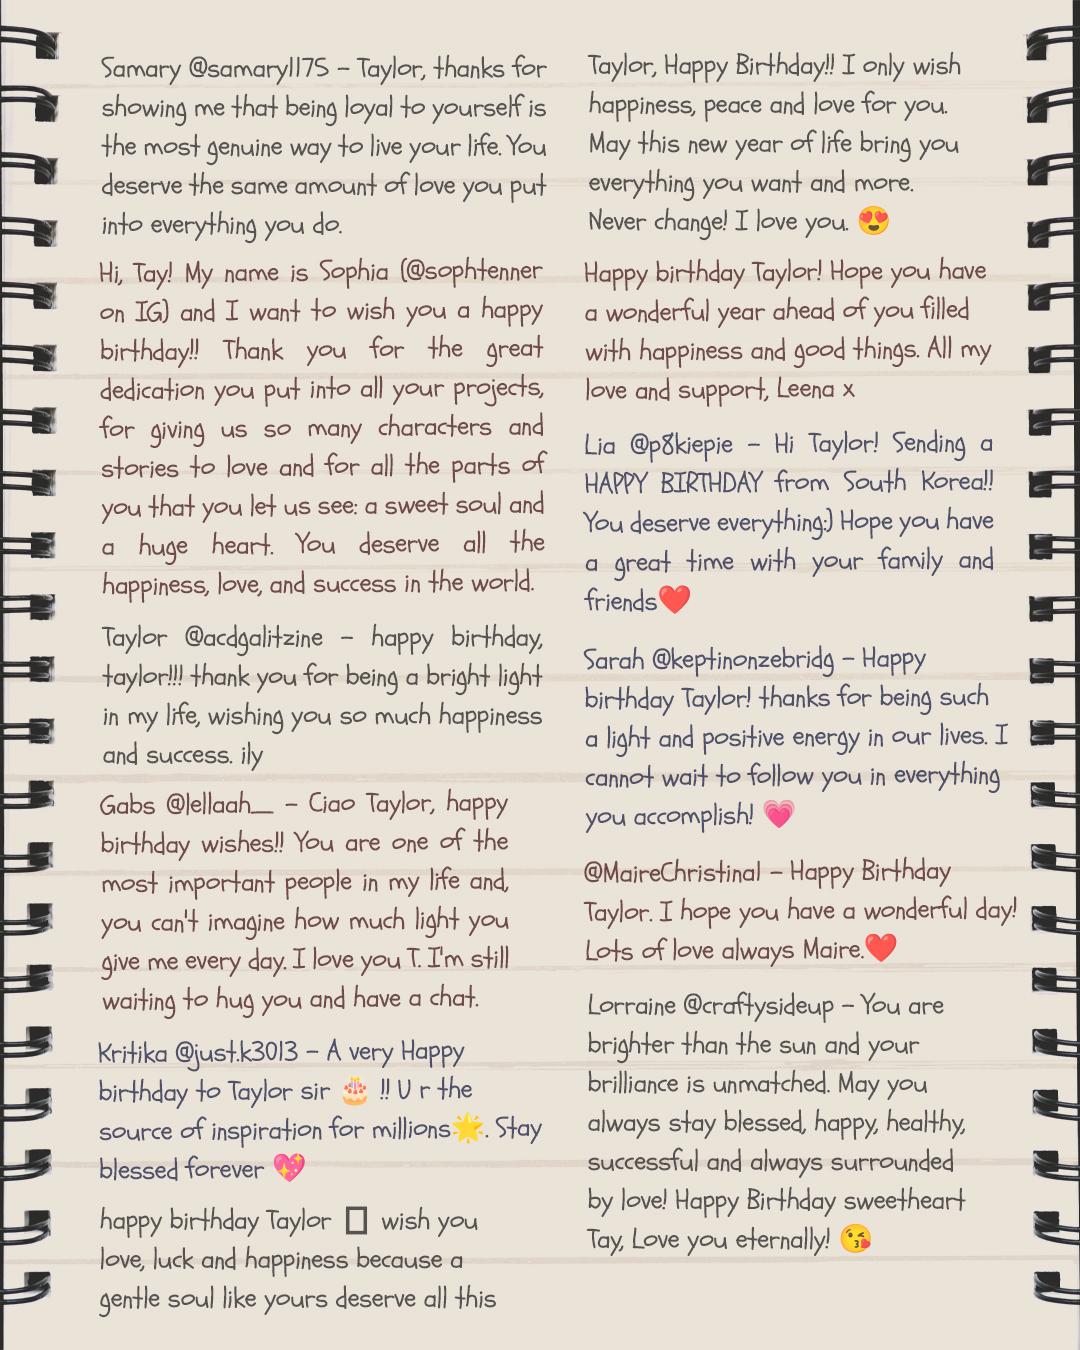 Samary @samary1175 - Taylor, thanks for
showing me that being loyal to yourself is
the most genuine way to live your life. You
deserve the same amount of love you put
into everything you do.
Hi, Tay! My name is Sophia (@sophtenner
on IG) and I want to wish you a happy
birthday!! Thank you for the great
dedication you put into all your projects,
for giving us so many characters and
stories to love and for all the parts of
you that you let us see: a sweet soul and
a huge heart. You deserve all the
happiness, love, and success in the world.
Taylor @acdgalitzine - happy birthday,
taylor!!! thank you for being a bright light
in my life, wishing you so much happiness
and success. ily
Gabs @lellaah__ - Ciao Taylor, happy
birthday wishes!! You are one of the
most important people in my life and,
you can't imagine how much light you
give me every day. I love you T. I'm still
waiting to hug you and have a chat.
Kritika @just.k3013 - A very Happy
birthday to Taylor sir 🎂 !! U r the
source of inspiration for millions🌟. Stay
blessed forever 💖
happy birthday Taylor wish you
love, luck and happiness because a
gentle soul like yours deserve all this
Taylor, Happy Birthday!! I only wish
happiness, peace and love for you.
May this new year of life bring you
everything you want and more.
Never change! I love you. 😍
Happy birthday Taylor! Hope you have
a wonderful year ahead of you filled
with happiness and good things. All my
love and support, Leena x
Lia @p8kiepie - Hi Taylor! Sending a
HAPPY BIRTHDAY from South Korea!!
You deserve everything:) Hope you have
a great time with your family and
friends❤️
Sarah @keptinonzebridg - Happy
birthday Taylor! thanks for being such
a light and positive energy in our lives. I
cannot wait to follow you in everything
you accomplish! 💗
@MaireChristina1 - Happy Birthday
Taylor. I hope you have a wonderful day!
Lots of love always Maire.❤️
Lorraine @craftysideup - You are
brighter than the sun and your
brilliance is unmatched. May you
always stay blessed, happy, healthy,
successful and always surrounded
by love! Happy Birthday sweetheart
Tay, Love you eternally! 😘